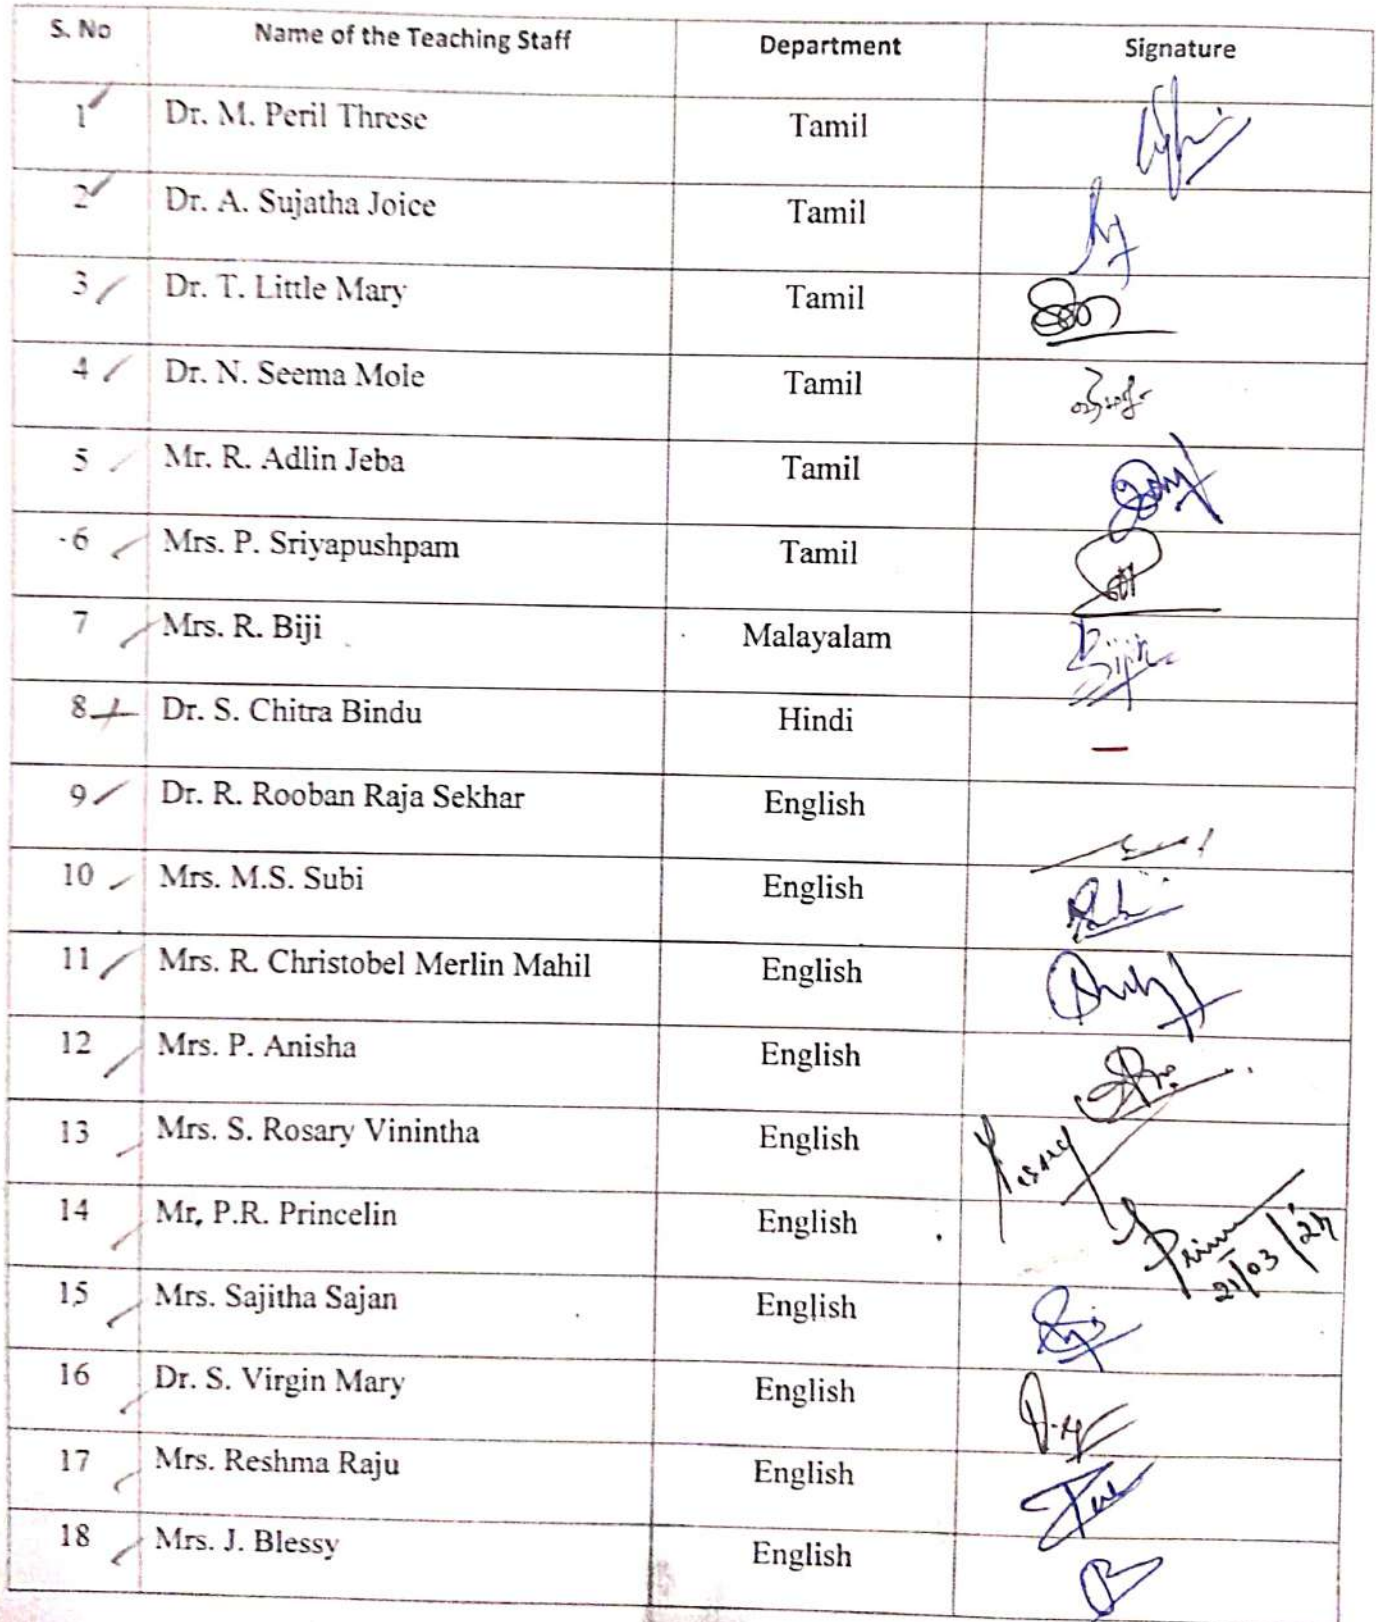 S. No Name of the Teaching Staff Department Signature
1 Dr. M. Peril Threse Tamil
2 Dr. A. Sujatha Joice Tamil
3 Dr. T. Little Mary Tamil
4 Dr. N. Seema Mole Tamil
5 Mr. R. Adlin Jeba Tamil
6 Mrs. P. Sriyapushpam Tamil
7 Mrs. R. Biji Malayalam
8 Dr. S. Chitra Bindu Hindi –
9 Dr. R. Rooban Raja Sekhar English
10 Mrs. M.S. Subi English
11 Mrs. R. Christobel Merlin Mahil English
12 Mrs. P. Anisha English
13 Mrs. S. Rosary Vinintha English
14 Mr. P.R. Princelin English
21/03/24
15 Mrs. Sajitha Sajan English
16 Dr. S. Virgin Mary English
17 Mrs. Reshma Raju English
18 Mrs. J. Blessy English